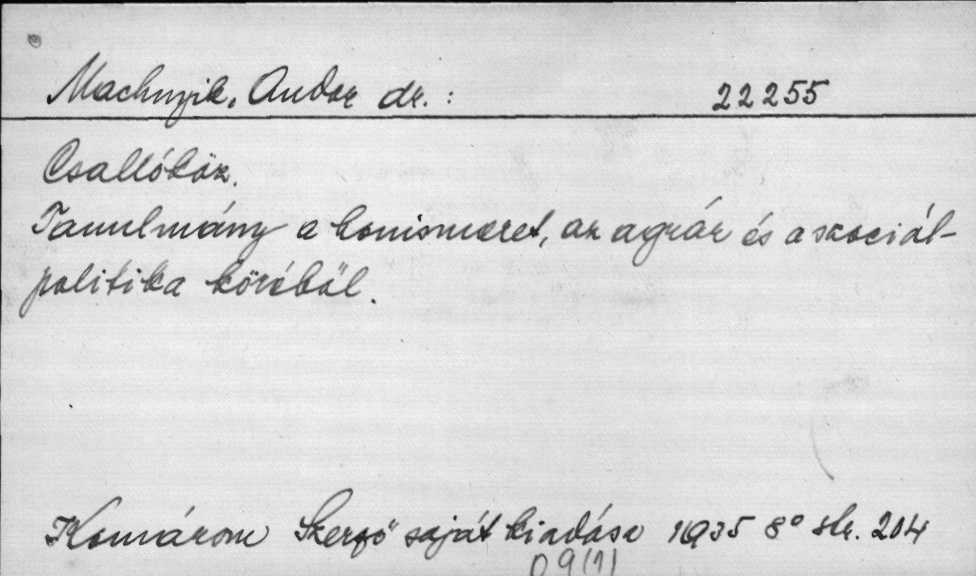 Machnyik, Andor dr. : 22255
Csallóköz.
Tanulmány a honismeret, az agrár és a szociál-
politika köréből.
Komárom Szerző saját kiadása 1935 8° str. 204
09(1)